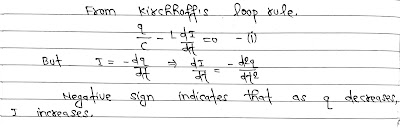 From Kirchhoff's loop rule.
q/C - L dI/dt = 0 - (i)
But I = -dq/dt ⇒ dI/dt = -d²q/dt²
Negative sign indicates that as q decreases,
I increases.